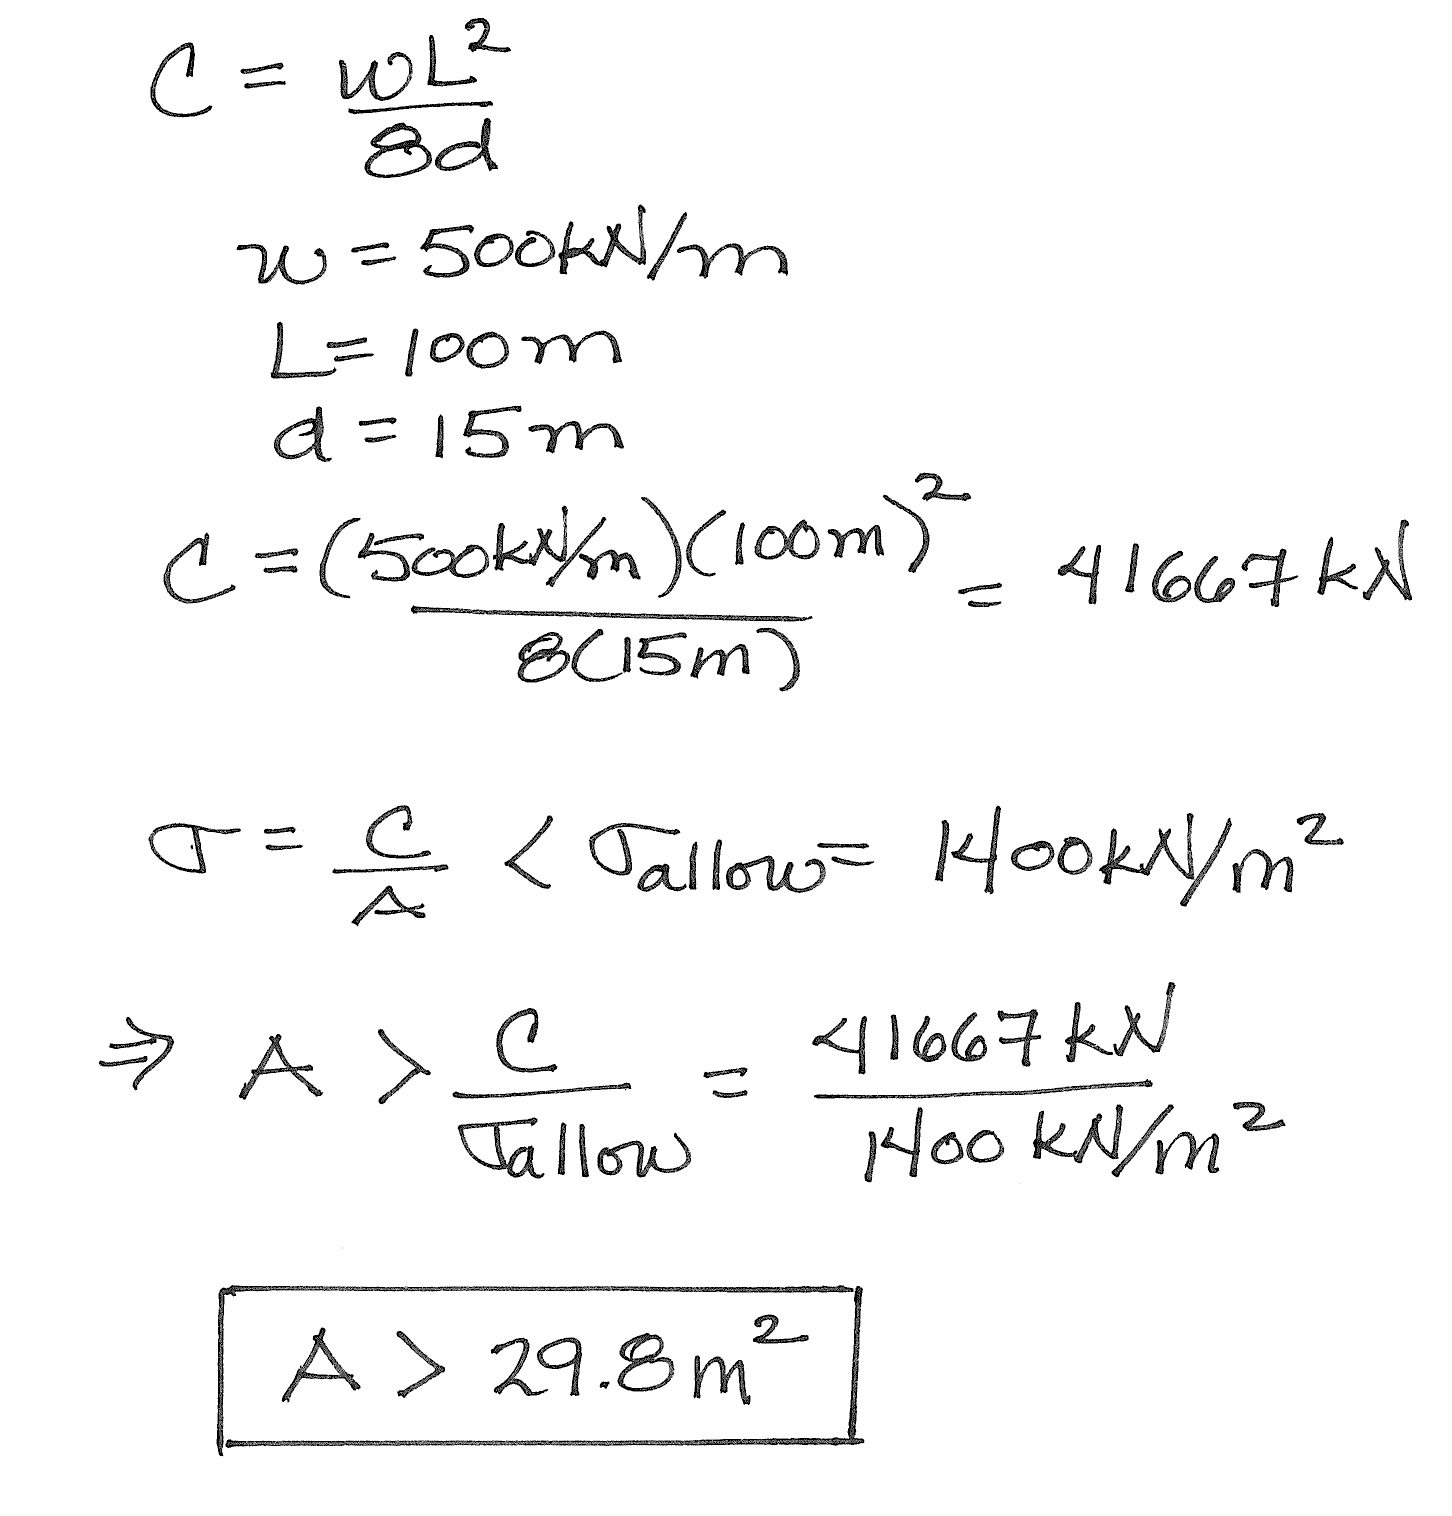 C = wL²/8d
w = 500kN/m
L = 100m
d = 15m
C = (500kN/m)(100m)²/8(15m) = 41667 kN
σ = C/A < σallow = 1400kN/m²
⇒ A > C/σallow = 41667 kN/1400 kN/m²
A > 29.8m²